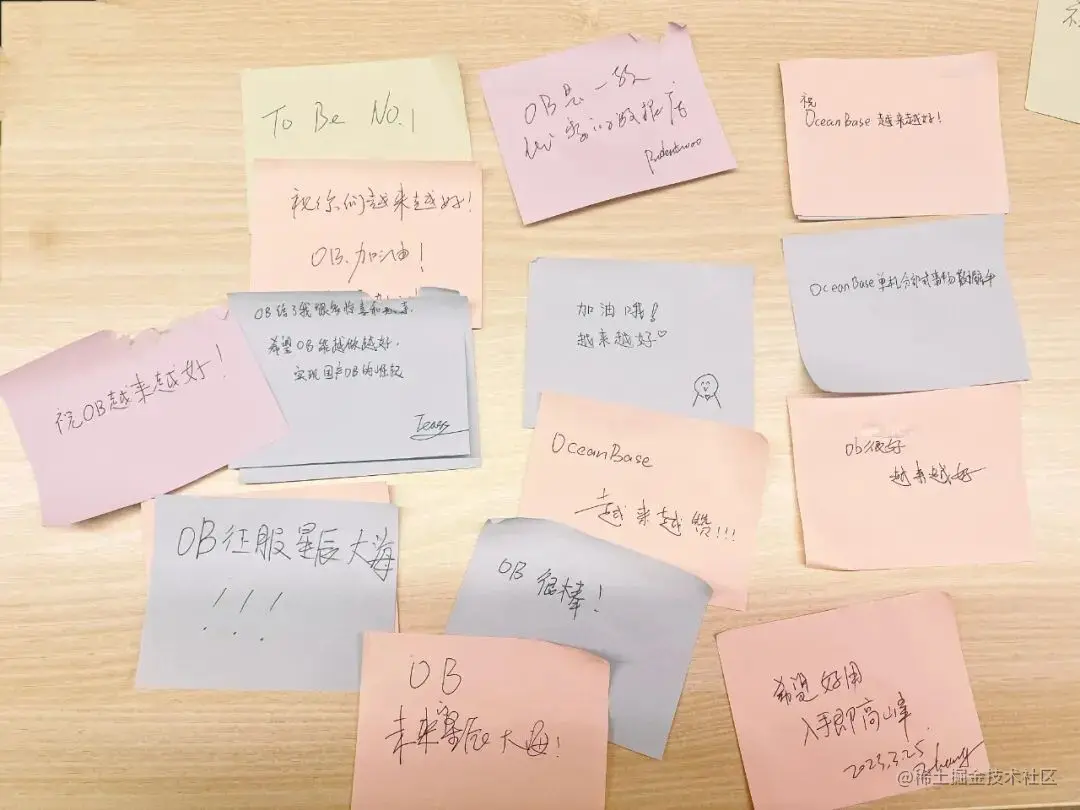 To Be No.1
祝你们越来越好!
OB.加油!
OB是一致
数据库
祝
OceanBase 越来越好!
OceanBase单机分布式
加油哦!
越来越好♡
OB给了我很多惊喜和
希望OB能越做越好.
实现国产DB的崛起
祝OB越来越好!
OceanBase
越来越赞!!!
ob很好
越来越好
OB征服星辰大海
!!!
OB 很棒!
OB
未来星辰大海!
希望好用
入手即高峰.
2023.3.25.
@稀土掘金技术社区